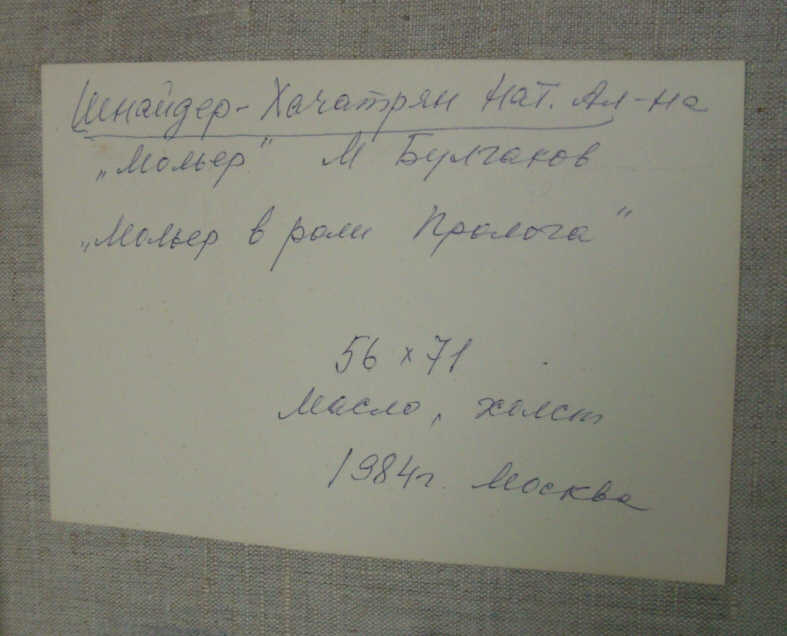 Шнайдер-Хачатрян Нат. Ал-на
„Мольер" М Булгаков
„Мольер в роли Пролога"
56 x 71
Масло, холст
1984г. Москва